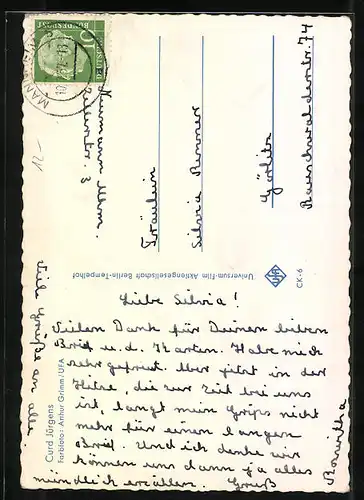 Liebe Silvia!
Vielen Dank für Deinen lieben
Brief u. d. Karten. Habe mich
sehr gefreut. Aber jetzt in der
Hitze, die zur Zeit bei uns
ist, langt mein Grips nicht
mehr für einen langen
Brief. Und ich denke wir
können uns dann ja alles
mündlich erzählen. Gruß
Roswitha
Viele Grüße an alle.
Fräulein
Silvia Renner
Görlitz
Rauschwalderstr. 74
Hermann
3
12-
DEUTSCHE
BUNDESPOST
10
MANNHEIM
Universum-Film Aktiengesellschaft Berlin-Tempelhof
UFA
CK-6
Curd Jürgens
Farbfoto: Arthur Grimm/UFA